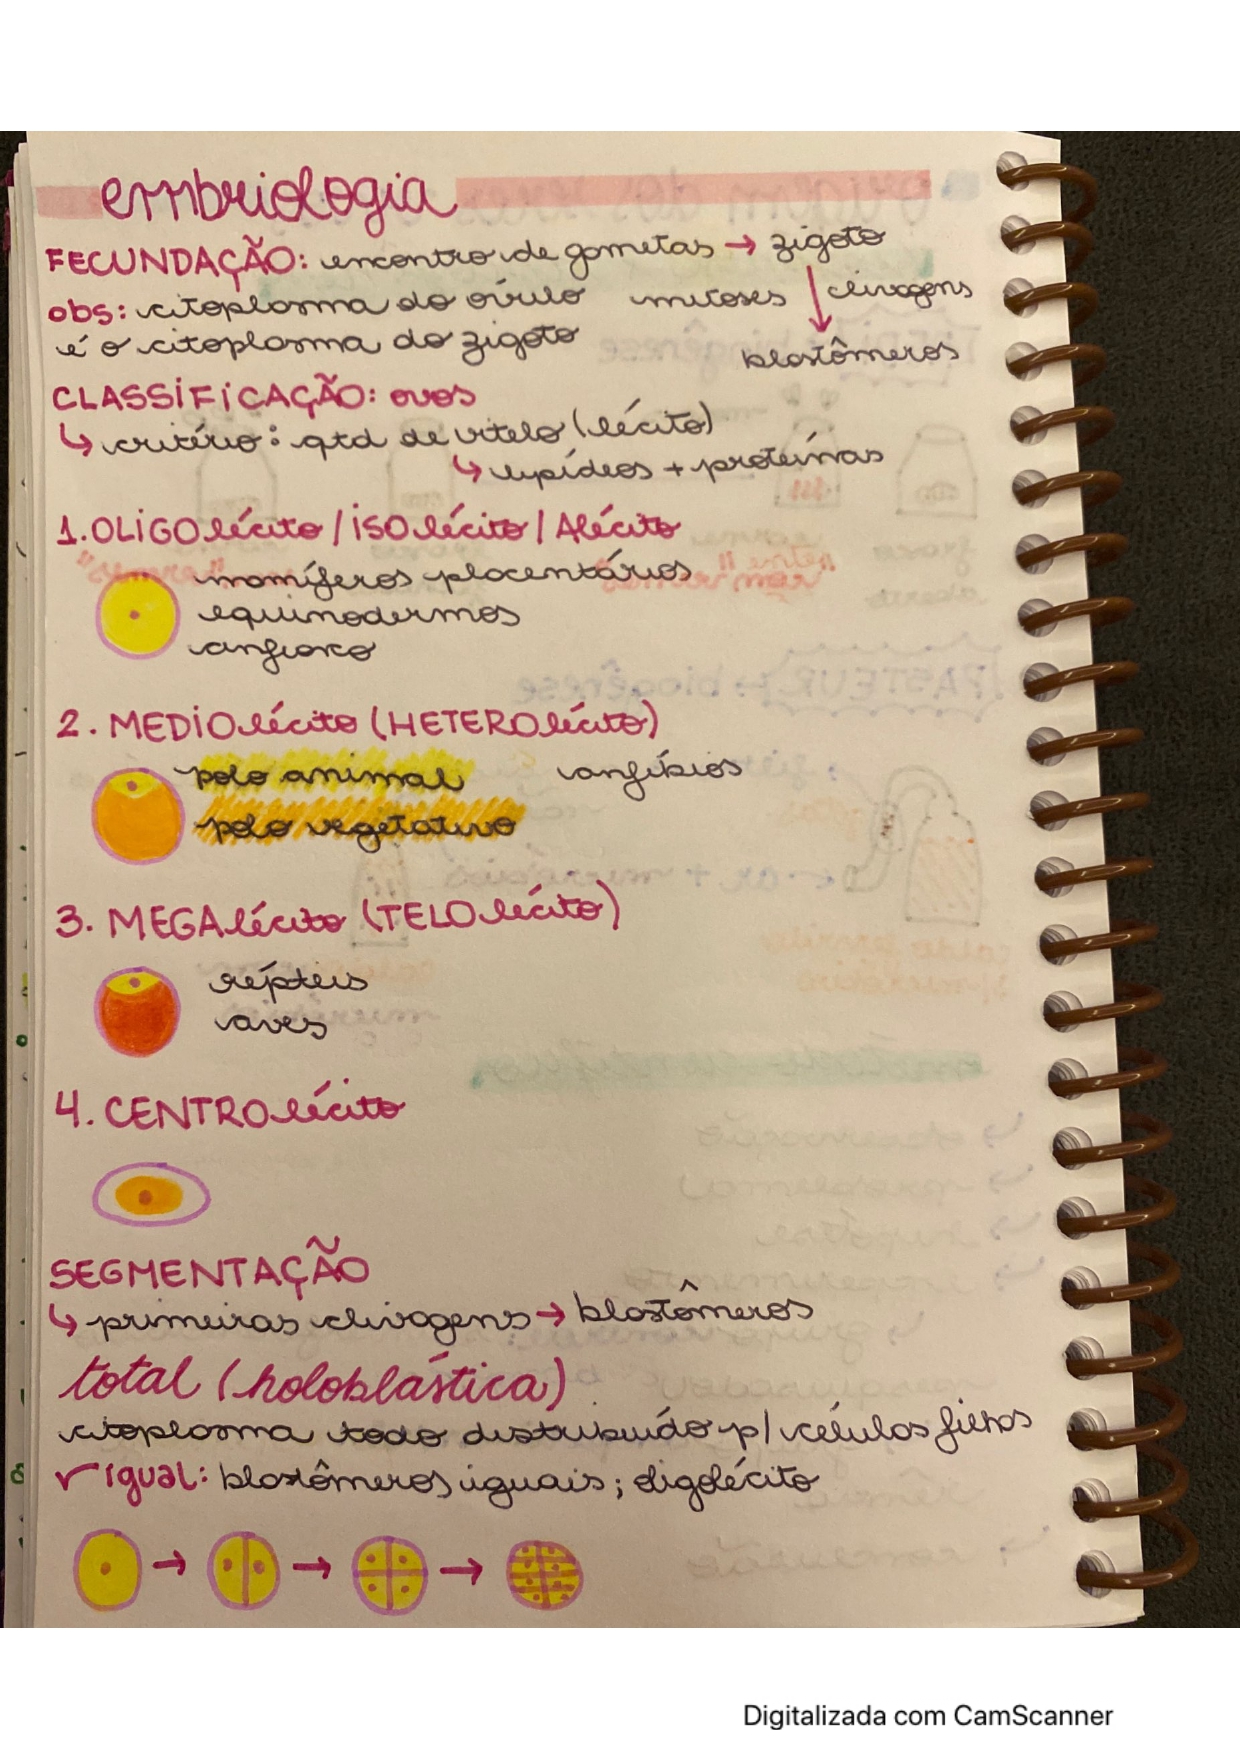 embriologia
FECUNDAÇÃO: encontro de gametas → zigoto
obs: citoplasma do óvulo mitoses ↓ clivagens
é o citoplasma do zigoto blastômeros
CLASSIFICAÇÃO: ovos
↳ critério: qtd de vitelo (lécito)
↳ lipídeos + proteínas
1. OLIGOlécito / ISOlécito / Alécito
mamíferos placentários
equinodermos
anfioxo
2. MEDIOlécito (HETEROlécito)
polo animal anfíbios
polo vegetativo
3. MEGAlécito (TELOlécito)
répteis
aves
4. CENTROlécito
SEGMENTAÇÃO
↳ primeiras clivagens → blastômeros
total (holoblástica)
citoplasma todo distribuído p/ células filhas
igual: blastômeros iguais; oligolécito
→ → →
Digitalizada com CamScanner